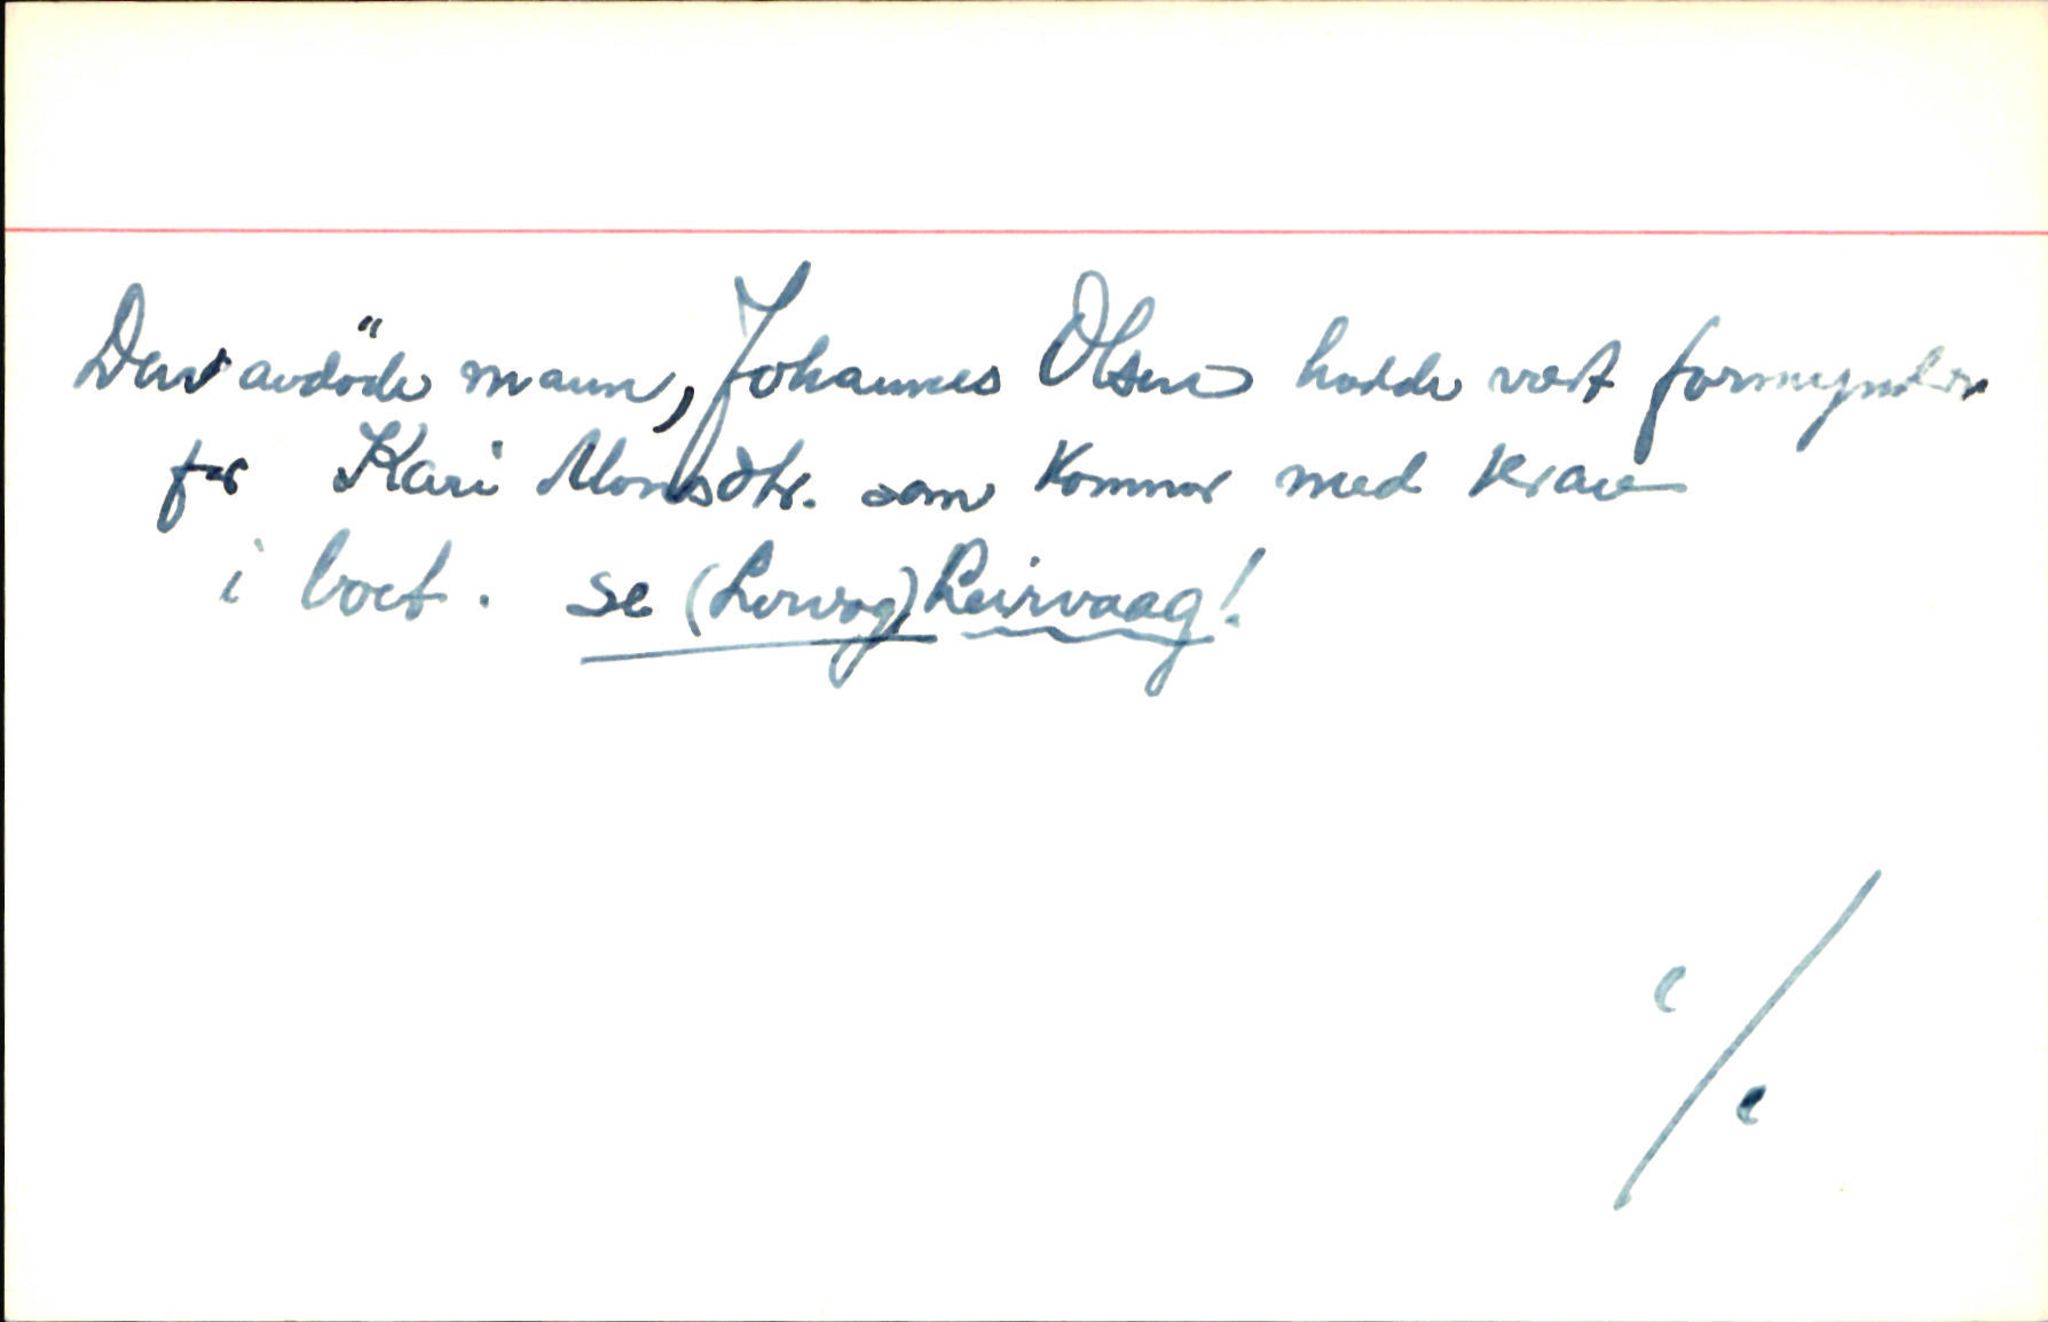 Den avdöde mann, Johannes Olsen hadde vært formynder
for Kari Monsdtr. som kommer med krav
i boet. se (Lervog) Leirvaag!